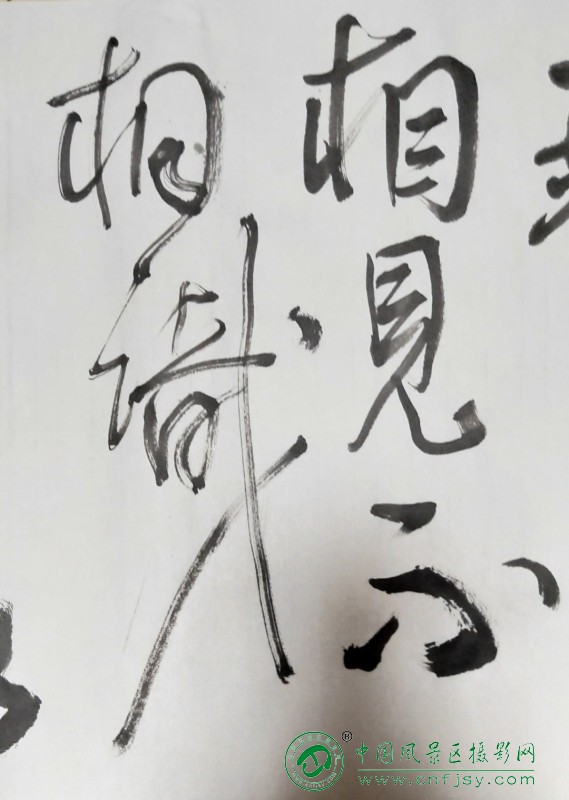 相見不
相識
中国风景区摄影网
www.cnfjsy.com